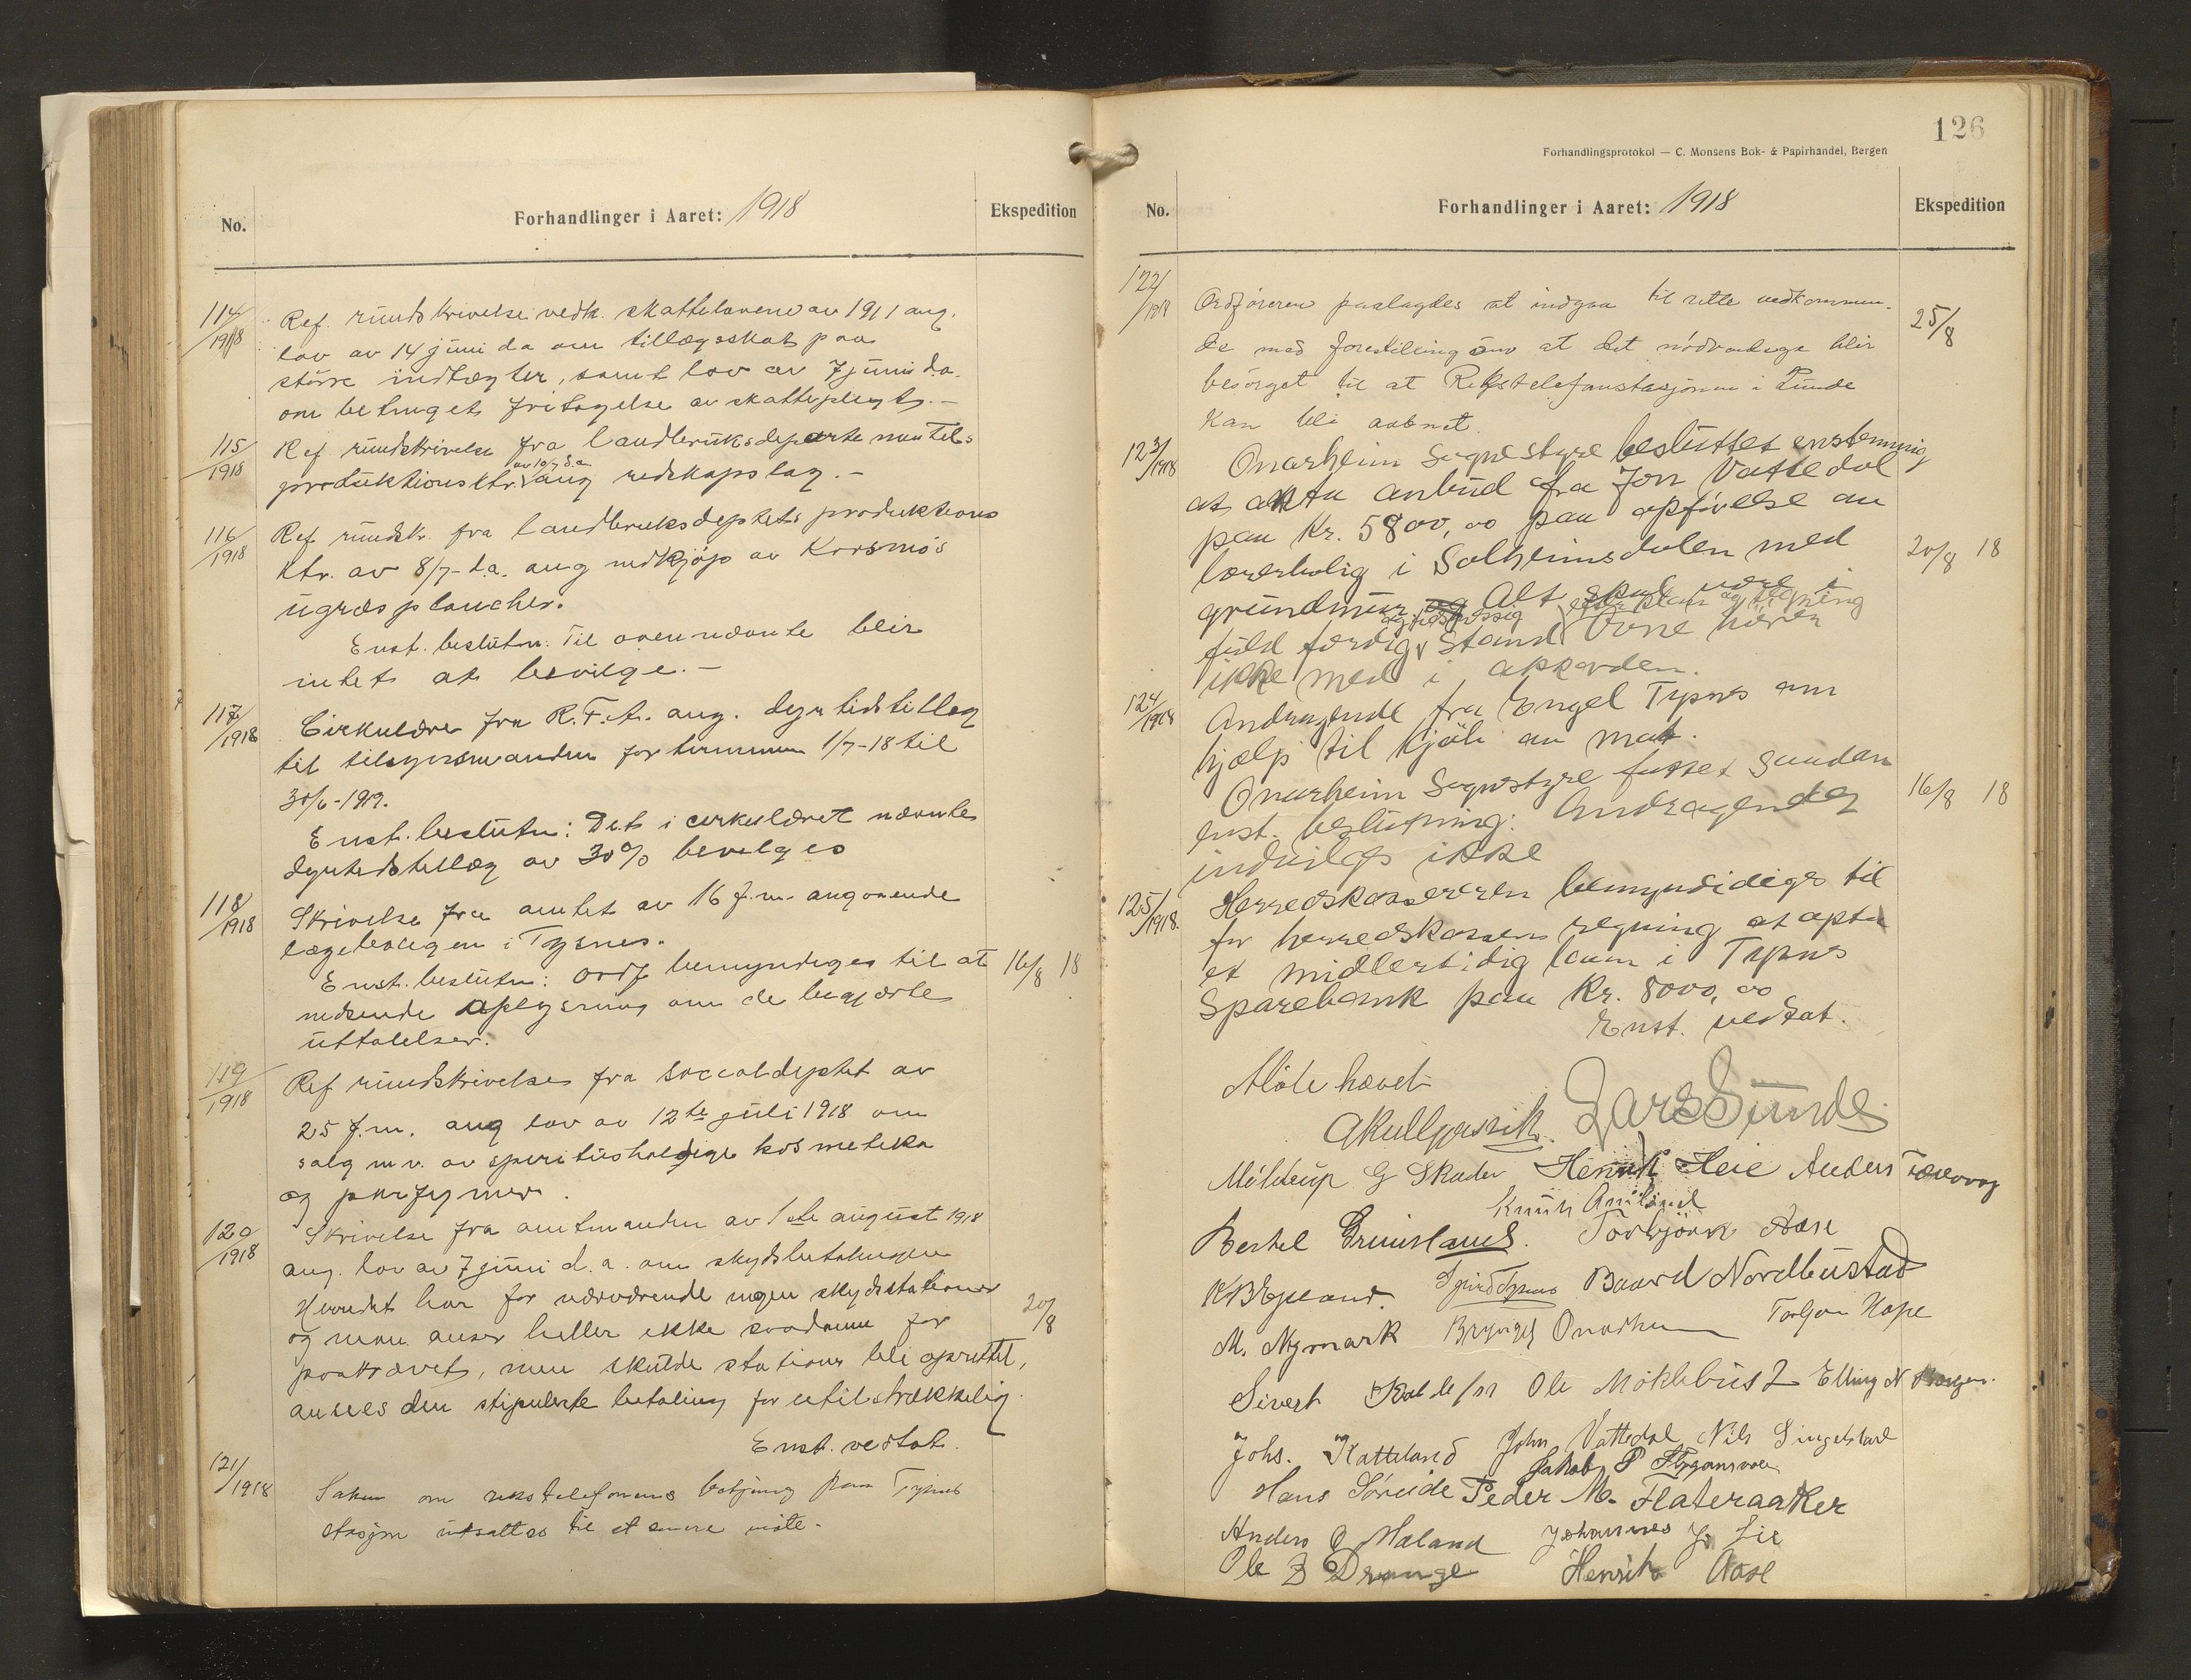 No.
Forhandlinger i Aaret: 1918
Ekspedition
114/1918
Ref. rundskrivelse vedk. skattelovene av 1911 ang.
lov av 14 juni d.a. om tillægsskat paa
større indtægter, samt lov av 7 juni d.a.
om betinget fritagelse av skatteplegt.-
115/1918
Ref rundskrivelse fra landbruksdepartementets
av 10/7 d.a.
produktionsktr. ang redskapslag.-
116/1918
Ref. rundsk. fra landbruksdeptets produktions
ktr. av 8/7- d.a. ang indkjøp av Korsmo's
ugræsplancher.
Enst. beslutn: Til ovennævnte blir
intet at bevilge.-
117/1918
Cirkulære fra R.F.A. ang. dyrtidstillæg
til tilsynsmanden for terminen 1/7-18 til
30/6-1919.
Enst. beslutn: Det i cirkulæret nævnte
dyrtidstillæg av 30% bevilges
118/1918
Skrivelse fra amtet av 16 f.m. angaaende
lægeboligen i Tysnes.
Enst. beslutn: Ordf bemyndiges til at
16/8 18
indsende oplysning om de begjærte
uttalelser.
119/1918
Ref rundskrivelse fra socialdeptet av
25 f.m. ang lov av 12te juli 1918 om
salg m.v. av spiritusholdige kosmetika
og parfymer.
120/1918
Skrivelse fra amtmanden av 1ste august 1918
ang. lov av 7 juni d.a. om skydsbetalingen
Herredet har for nærværende ingen skydsstationer
20/8
og man anser heller ikke saadanne for
paakrævet, men skulde stationer bli oprettet,
ansees den stipulerte betaling for utilstrækkelig.
Enst. vedtat.
121/1918
Saken om rikstelefonens betjening paa Tysnes
stasjon utsattes til et senere møte.
126
Forhandlingsprotokol — C. Monsens Bok- & Papirhandel, Bergen
No.
Forhandlinger i Aaret: 1918
Ekspedition
122/1918
Ordføreren paalagdes at indgaa til rette vedkommen-
25/8
de med forestilling om at det nødvendige blir
besørget til at Rikstelefonstasjonen i Lunde
kan bli aabnet.
123/1918
Onarheim Sognestyre besluttet enstemmig
at anta anbud fra Jon Vattedal
paa Kr. 5800,00 paa opførelse av
lærerbolig i Solheimsdalen med
20/8 18
grundmur og Alt skal være i
og forsvarlig efter plan og tegning
fuld færdig stand Ovne hører
ikke med i akkorden.
124/1918
Andragende fra Engel Tysnes om
hjælp til kjøb av mat.
Onarheim Sognestyre fattet saadan
16/8 18
enst. beslutning: Andragendet
indvilges ikke
125/1918.
Herredskassereren bemyndidiges til
for herredskassens regning at opta
et midlertidig laan i Tysnes
Sparebank paa Kr. 8000,00
Enst. vedtat.
Møte hævet
Lars Sunde
G Skaden Henrik Heie Anders
Knut Amland
Bertel Grimsland. Torbjörn Aase
K B Epland. Baard Nordbustad
M. Nymark Onarheim Hope
Sivert Ole Möklebust Elling N
Johs. Katteland John Vattedal Nils Singelstad
Jakob P
Hans Søreide Peder M. Flateraaker
Anders O Mæland Johannes J. Lie
Ole Z Drange Henrik Aase